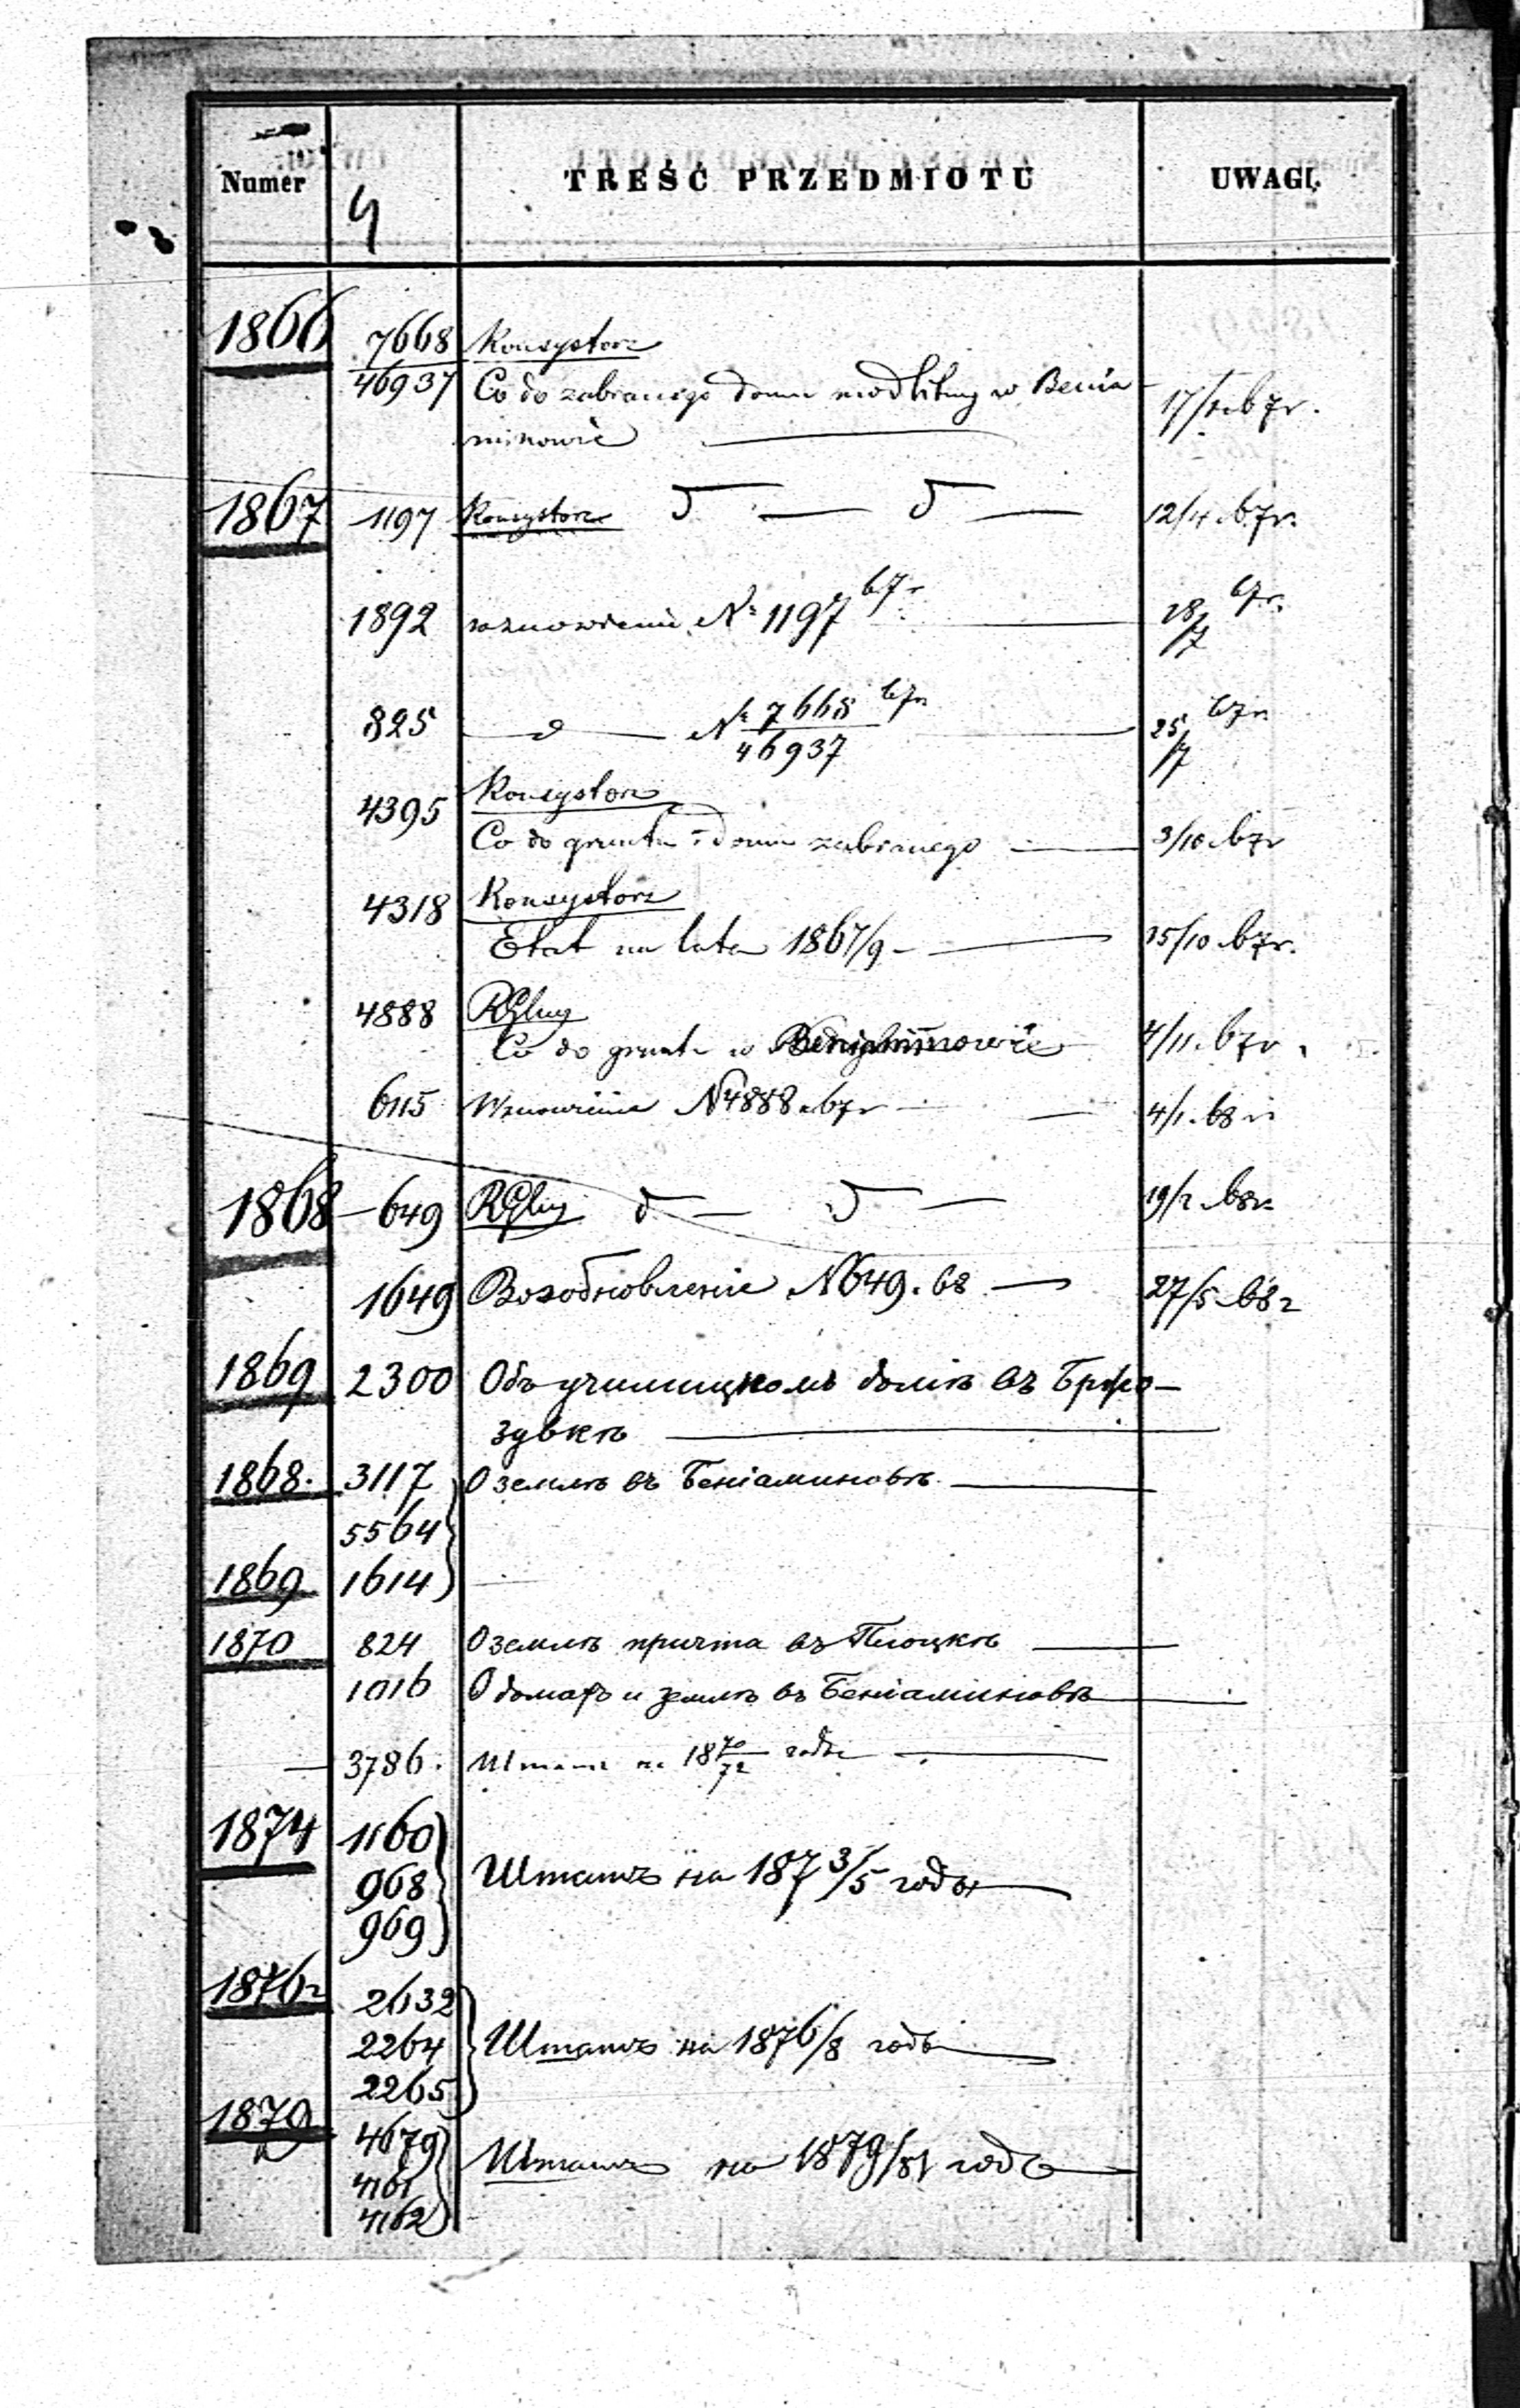 Numer 4 TREŚĆ PRZEDMIOTU UWAGI.
1866 7668 Konsystorz
46937 Co do zabranego domu modlitwy w Benia-
minowie 17/1 67r.
1867 1197 Konsystorz d — d — 12/4 67r.
1892 wznowienie № 1197 67r 28/7 67r.
825 — d — № 7668/46937 67r 25/7 67r
4395 Konsystorz
Co do gruntu i domu zabranego — 3/10 67r
4318 Konsystorz
Etat na lata 1867/9 — 15/10 67r.
4888 RGbny
Co do gruntu w Beniaminowie 4/11 67r.
6115 Wznowienie N 4888 67r — 4/1 68 r
1868 — 649 RGbny d — d — 19/2 68r
1649 Возобновленіе N 649. 68 — 27/5 68 г
1869 2300 Объ училищномъ домѣ въ Брҍо-
зувкѣ
1868. 3117 О землѣ въ Беніаминовѣ
5564
1869 1614
1870 824 О землѣ причта въ Плоцкѣ
1016 О домахъ и землѣ въ Беніаминовѣ
3786. Штатъ на 1870/72 годы
1874 1160
968 Штатъ на 1873/5 годы
969
1876г 2632
2264 Штатъ на 1876/8 годы
2265
1879 4679
4161 Штатъ на 1879/81 годы
4162